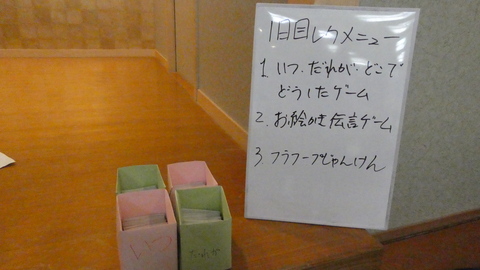 1日目レクメニュー
1. いつ・だれが・どこで
どうしたゲーム
2. お絵かき伝言ゲーム
3. フラフープじゃんけん
いつ
だれが